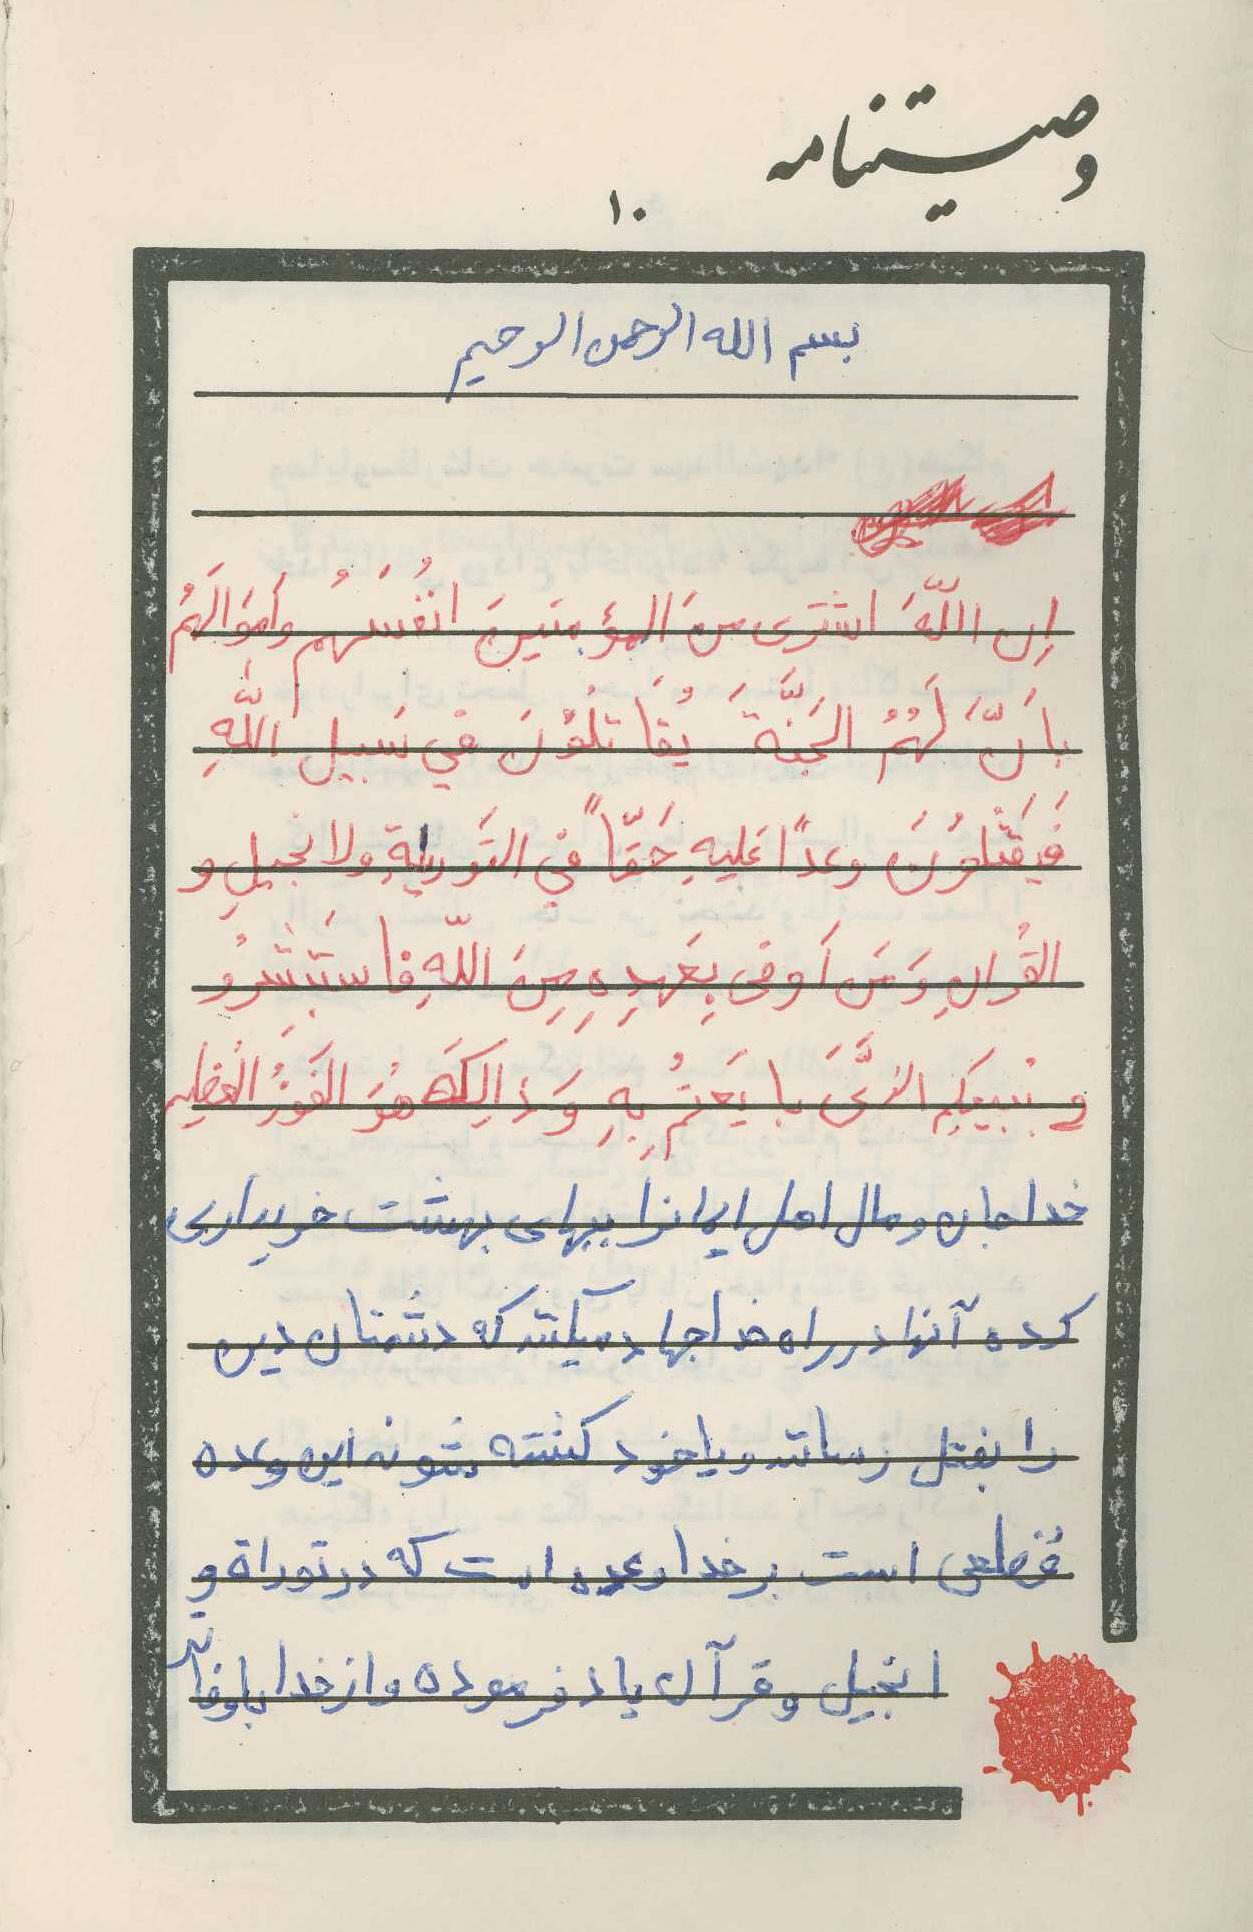 وصیتنامه
۱۰
بسم الله الرحمن الرحیم
اِن اللّهَ اشتَرَی مِنَ المؤمنینَ انفُسَهُم وَاَموَالَهُم
بِاَنَّ لَهُمُ الجَنَّةَ یُقاتلُونَ فی سَبیلِ اللّهِ
فَیَقتُلُونَ وعداً عَلیهِ حَقّاً فی التَوریةِ ولانجیلِ و
القُرانِ وَمَن اَوفی بِعَهدِهِ مِنَ اللّهِ فاستَبشِرُو
و بَیعِکُم الذَّی بایَعتُم بِهِ وَذالِکَ هُوَ الفَوزُ العَظیم
خدا جان و مال اهل ایمانرا ببهای بهشت خریداری
کرده آنها در راه خدا جهاد میکنند که دشمنان دین
را بقتل رسانند و یا خود کشته شوند این وعده
قطعی است بر خدا وعده است که در توراة و
انجیل و قرآن یاد فرموده و از خدا باوفاتر